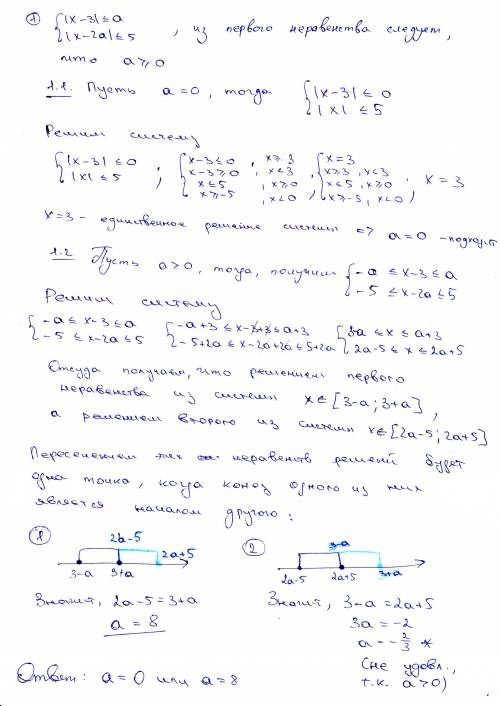 1) { |x-3| ≤ a
{ |x-2a| ≤ 5 , из первого неравенства следует,
что a ≥ 0
1.1. Пусть a = 0, тогда { |x-3| ≤ 0
{ |x| ≤ 5
Решим систему
{ |x-3| ≤ 0 ; { x-3 ≤ 0 , x ≥ 3 ; { x = 3
{ |x| ≤ 5 { x-3 ≥ 0 , x < 3 { x ≥ 3, x < 3 ; x = 3
{ x ≤ 5 , x ≥ 0 { x ≤ 5, x ≥ 0
{ x ≥ -5 , x < 0 { x ≥ -5, x < 0
x = 3 - единственное решение системы => a = 0 - подходит
1.2 Пусть a > 0, тогда, получим { -a ≤ x-3 ≤ a
{ -5 ≤ x-2a ≤ 5
Решим систему
{ -a ≤ x-3 ≤ a { -a+3 ≤ x-3+3 ≤ a+3 { 3-a ≤ x ≤ a+3
{ -5 ≤ x-2a ≤ 5 { -5+2a ≤ x-2a+2a ≤ 5+2a { 2a-5 ≤ x ≤ 2a+5
Отсюда получаем, что решением первого
неравенства из системы x ∈ [3-a; 3+a],
а решением второго из системы x ∈ [2a-5; 2a+5]
Пересечением этих неравенств решений будет
одна точка, когда конец одного из них
является началом другого:
1) 2a-5 2a+5
3-a 3+a
Значит, 2a-5 = 3+a
a = 8
2) 3-a
2a-5 2a+5 3+a
Значит, 3-a = 2a+5
3a = -2
a = -2/3 *
(не удовл.,
т.к. a > 0)
Ответ: a = 0 или a = 8